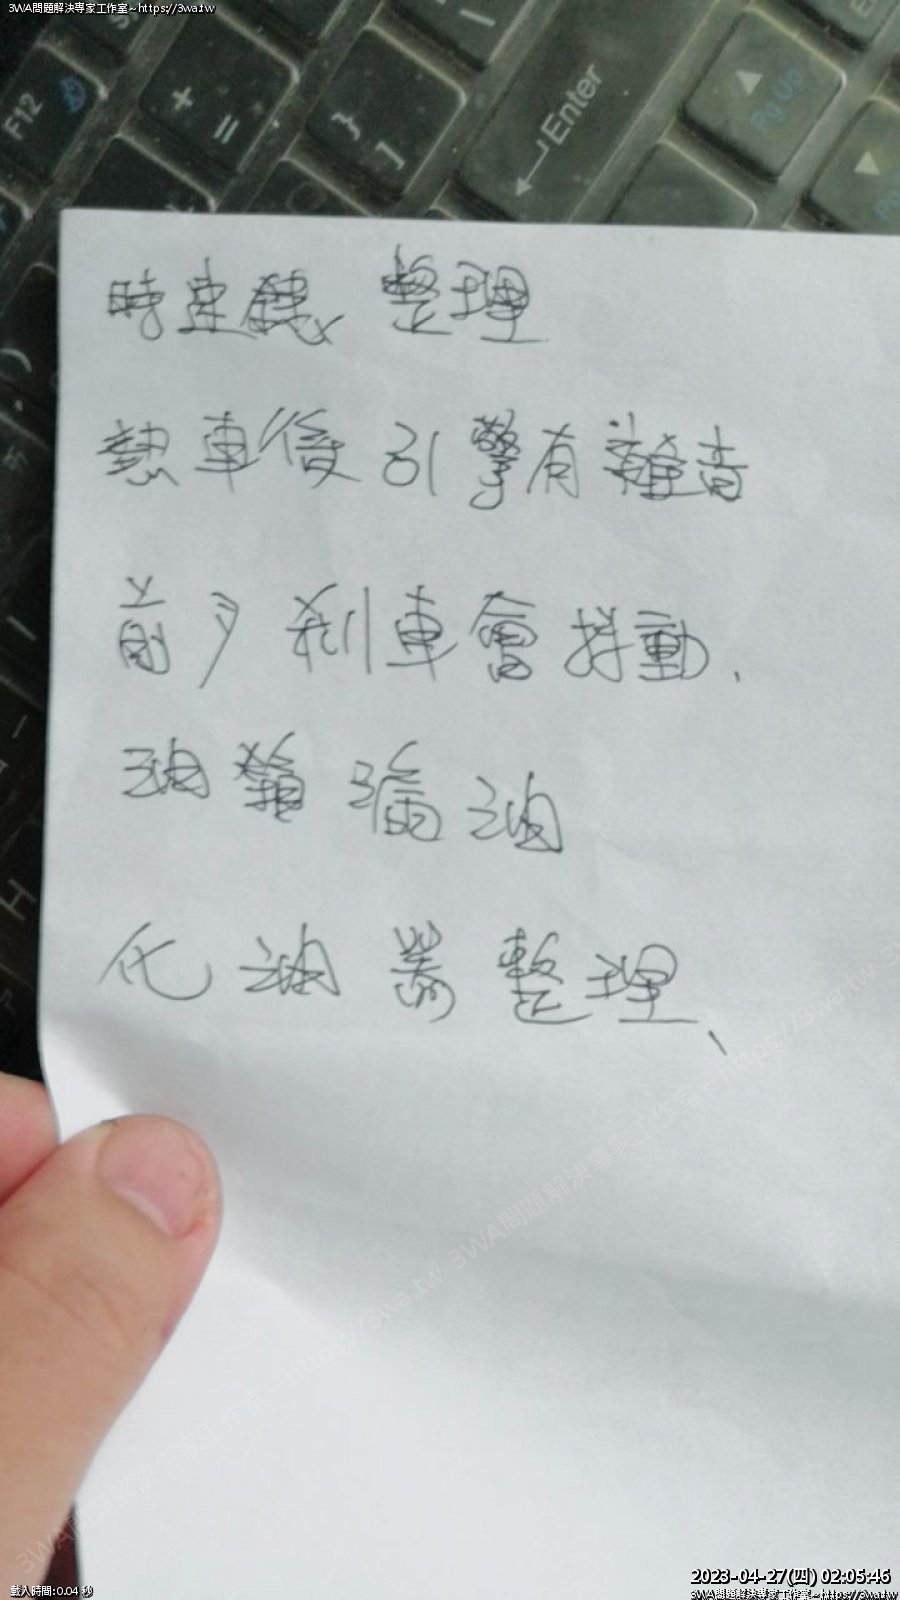 3WA問題解決專家工作室~https://3wa.tw
F12
+
=
}
]
Enter
PgUp
時速錶 整理
熱車後引擎有雜音
前 剎車會抖動、
油鎖漏油
化油器整理、
3WA問題解決專家工作室~https://3wa.tw 3WA問題解決專家工作室~https://3wa.tw
載入時間:0.04 秒
2023-04-27(四) 02:05:46
3WA問題解決專家工作室~https://3wa.tw